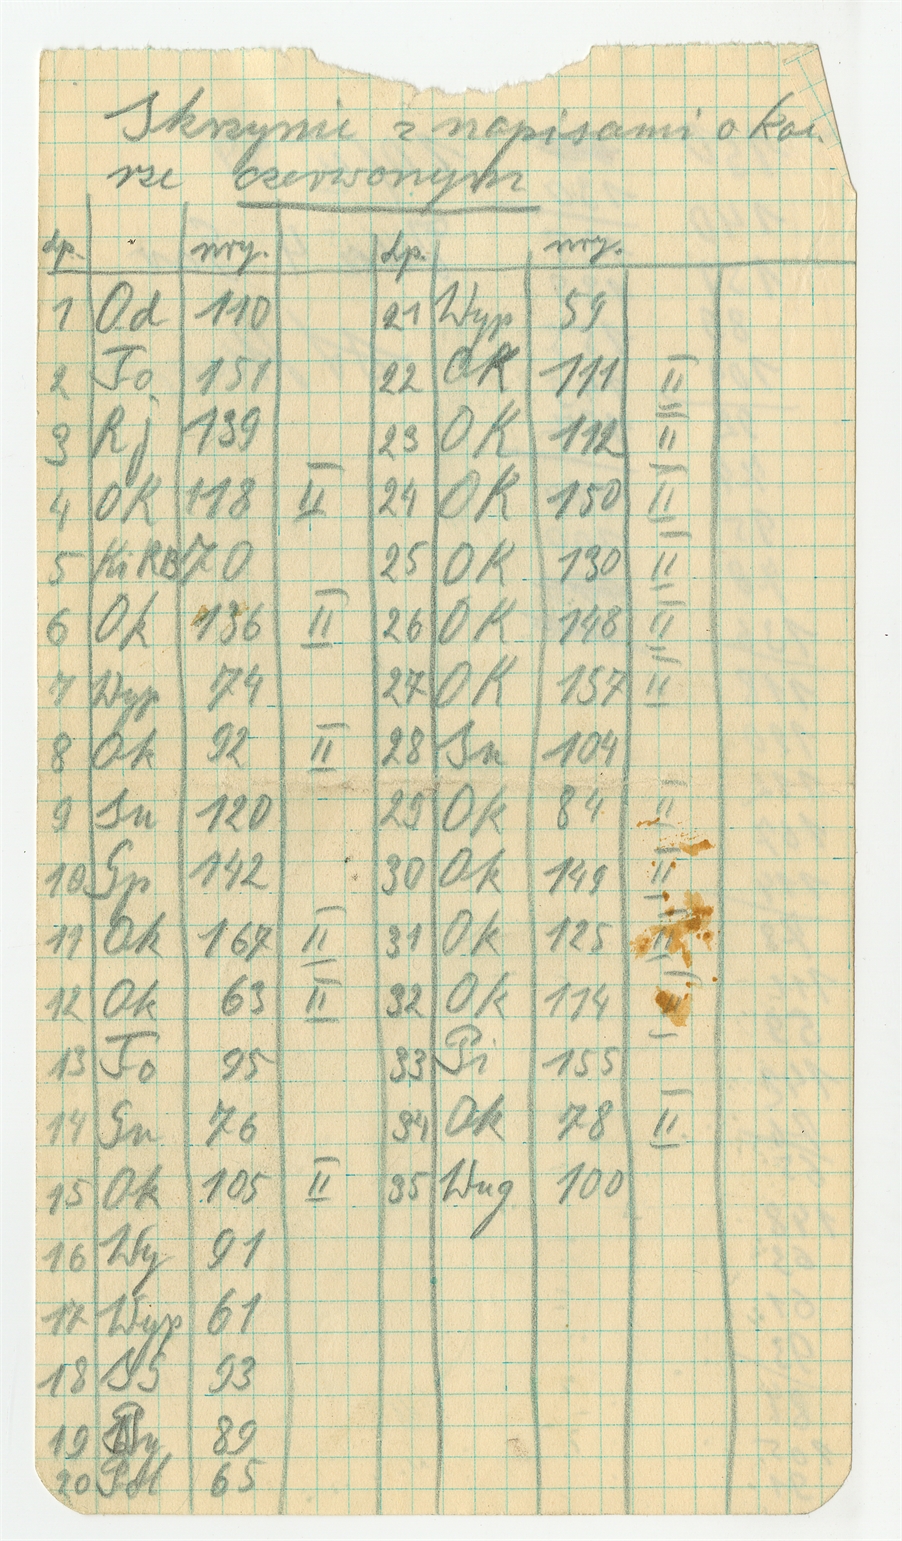 Skrzynie z napisami o kolo-
rze czerwonym
Lp. nry. Lp. nry.
1 Od 110 21 Wyp 59
2 To 151 22 OK 111 II
3 Rj 139 23 OK 112 II
4 OK 118 II 24 OK 150 II
5 KiRB 70 25 OK 130 II
6 Ok 136 II 26 OK 148 II
7 Wyp 74 27 OK 157 II
8 Ok 92 II 28 Sn 104
9 Sn 120 29 Ok 84 II
10 Gp 142 30 Ok 149 II
11 Ok 167 II 31 Ok 125 II
12 Ok 63 II 32 Ok 114 II
13 To 95 33 Pi 155
14 Sn 76 34 Ok 78 II
15 Ok 105 II 35 Wug 100
16 Wy 91
17 Wyp 61
18 93
19 89
20 65